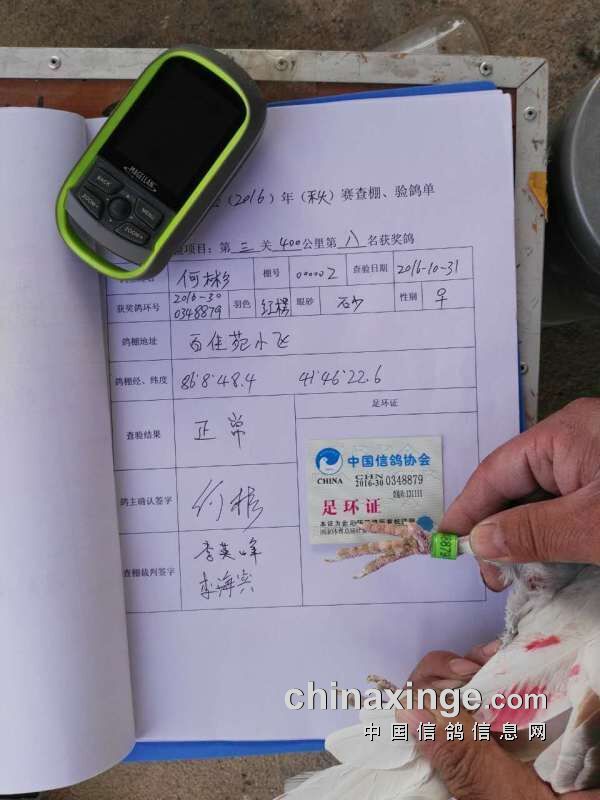 MAGELLAN
BACK
MENU
ZOOM+
ZOOM-
(2016)年(秋)赛查棚、验鸽单
项目:第三关400公里第八名获奖鸽
何彬 棚号 000002 查验日期 2016-10-31
获奖鸽环号 2016-30 0348879 羽色 红楞 眼砂 石少 性别 ♀
鸽棚地址 百佳苑小飞
鸽棚经、纬度 86°8′48.4 41°46′22.6
查验结果 正常
足环证
鸽主确认签字 何彬
查棚裁判签字 李英峰
李海宾
中国信鸽协会
CHINA
CHN
2016-30 0348879
足环证
chinaxinge.com
中国信鸽信息网